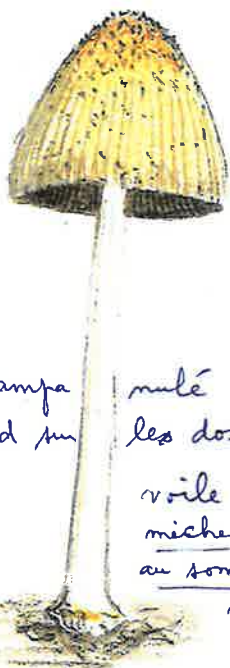 ampa nulé
d sur les dos
voile
miche
au som